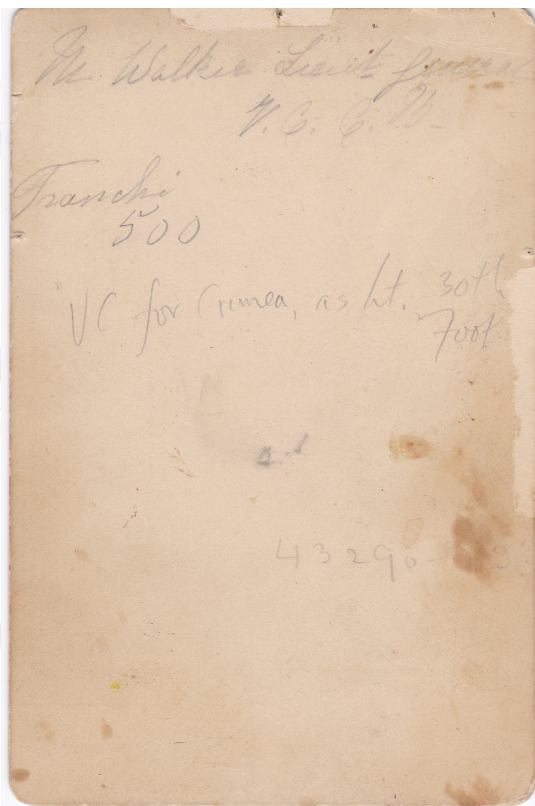 M. Walker Lieut General
V. C. C. B.
Franchi
500
VC for Crimea, as Lt. 30th
Foot
43290-